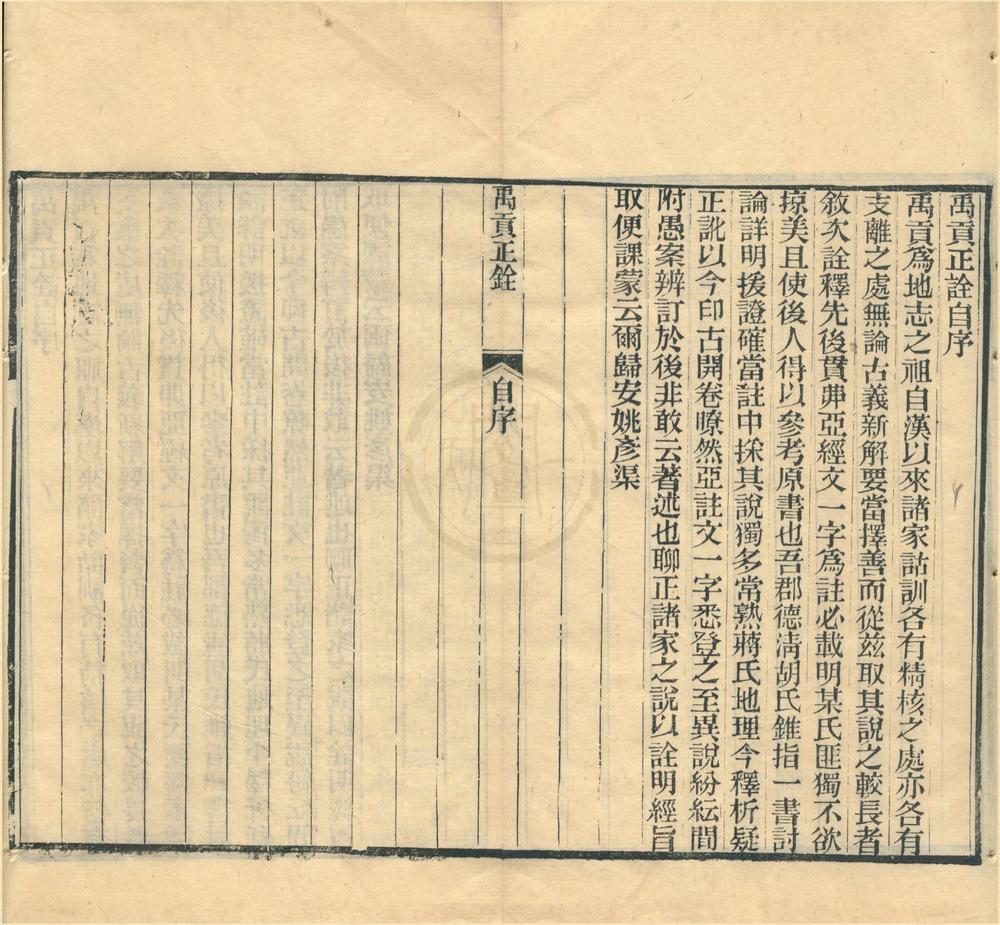 禹貢正詮自序
禹貢爲地志之祖自漢以來諸家詁訓各有精核之處亦各有
支離之處無論古義新解要當擇善而從茲取其說之較長者
敘次詮釋先後貫丳亞經文一字爲註必載明某氏匪獨不欲
掠美且使後人得以參考原書也吾郡德淸胡氏錐指一書討
論詳明援證確當註中採其說獨多常熟蔣氏地理今釋析疑
正訛以今印古開卷瞭然亞註文一字悉登之至異說紛紜間
附愚案辨訂於後非敢云著述也聊正諸家之說以詮明經旨
取便課蒙云爾歸安姚彥渠
禹貢正銓
自序